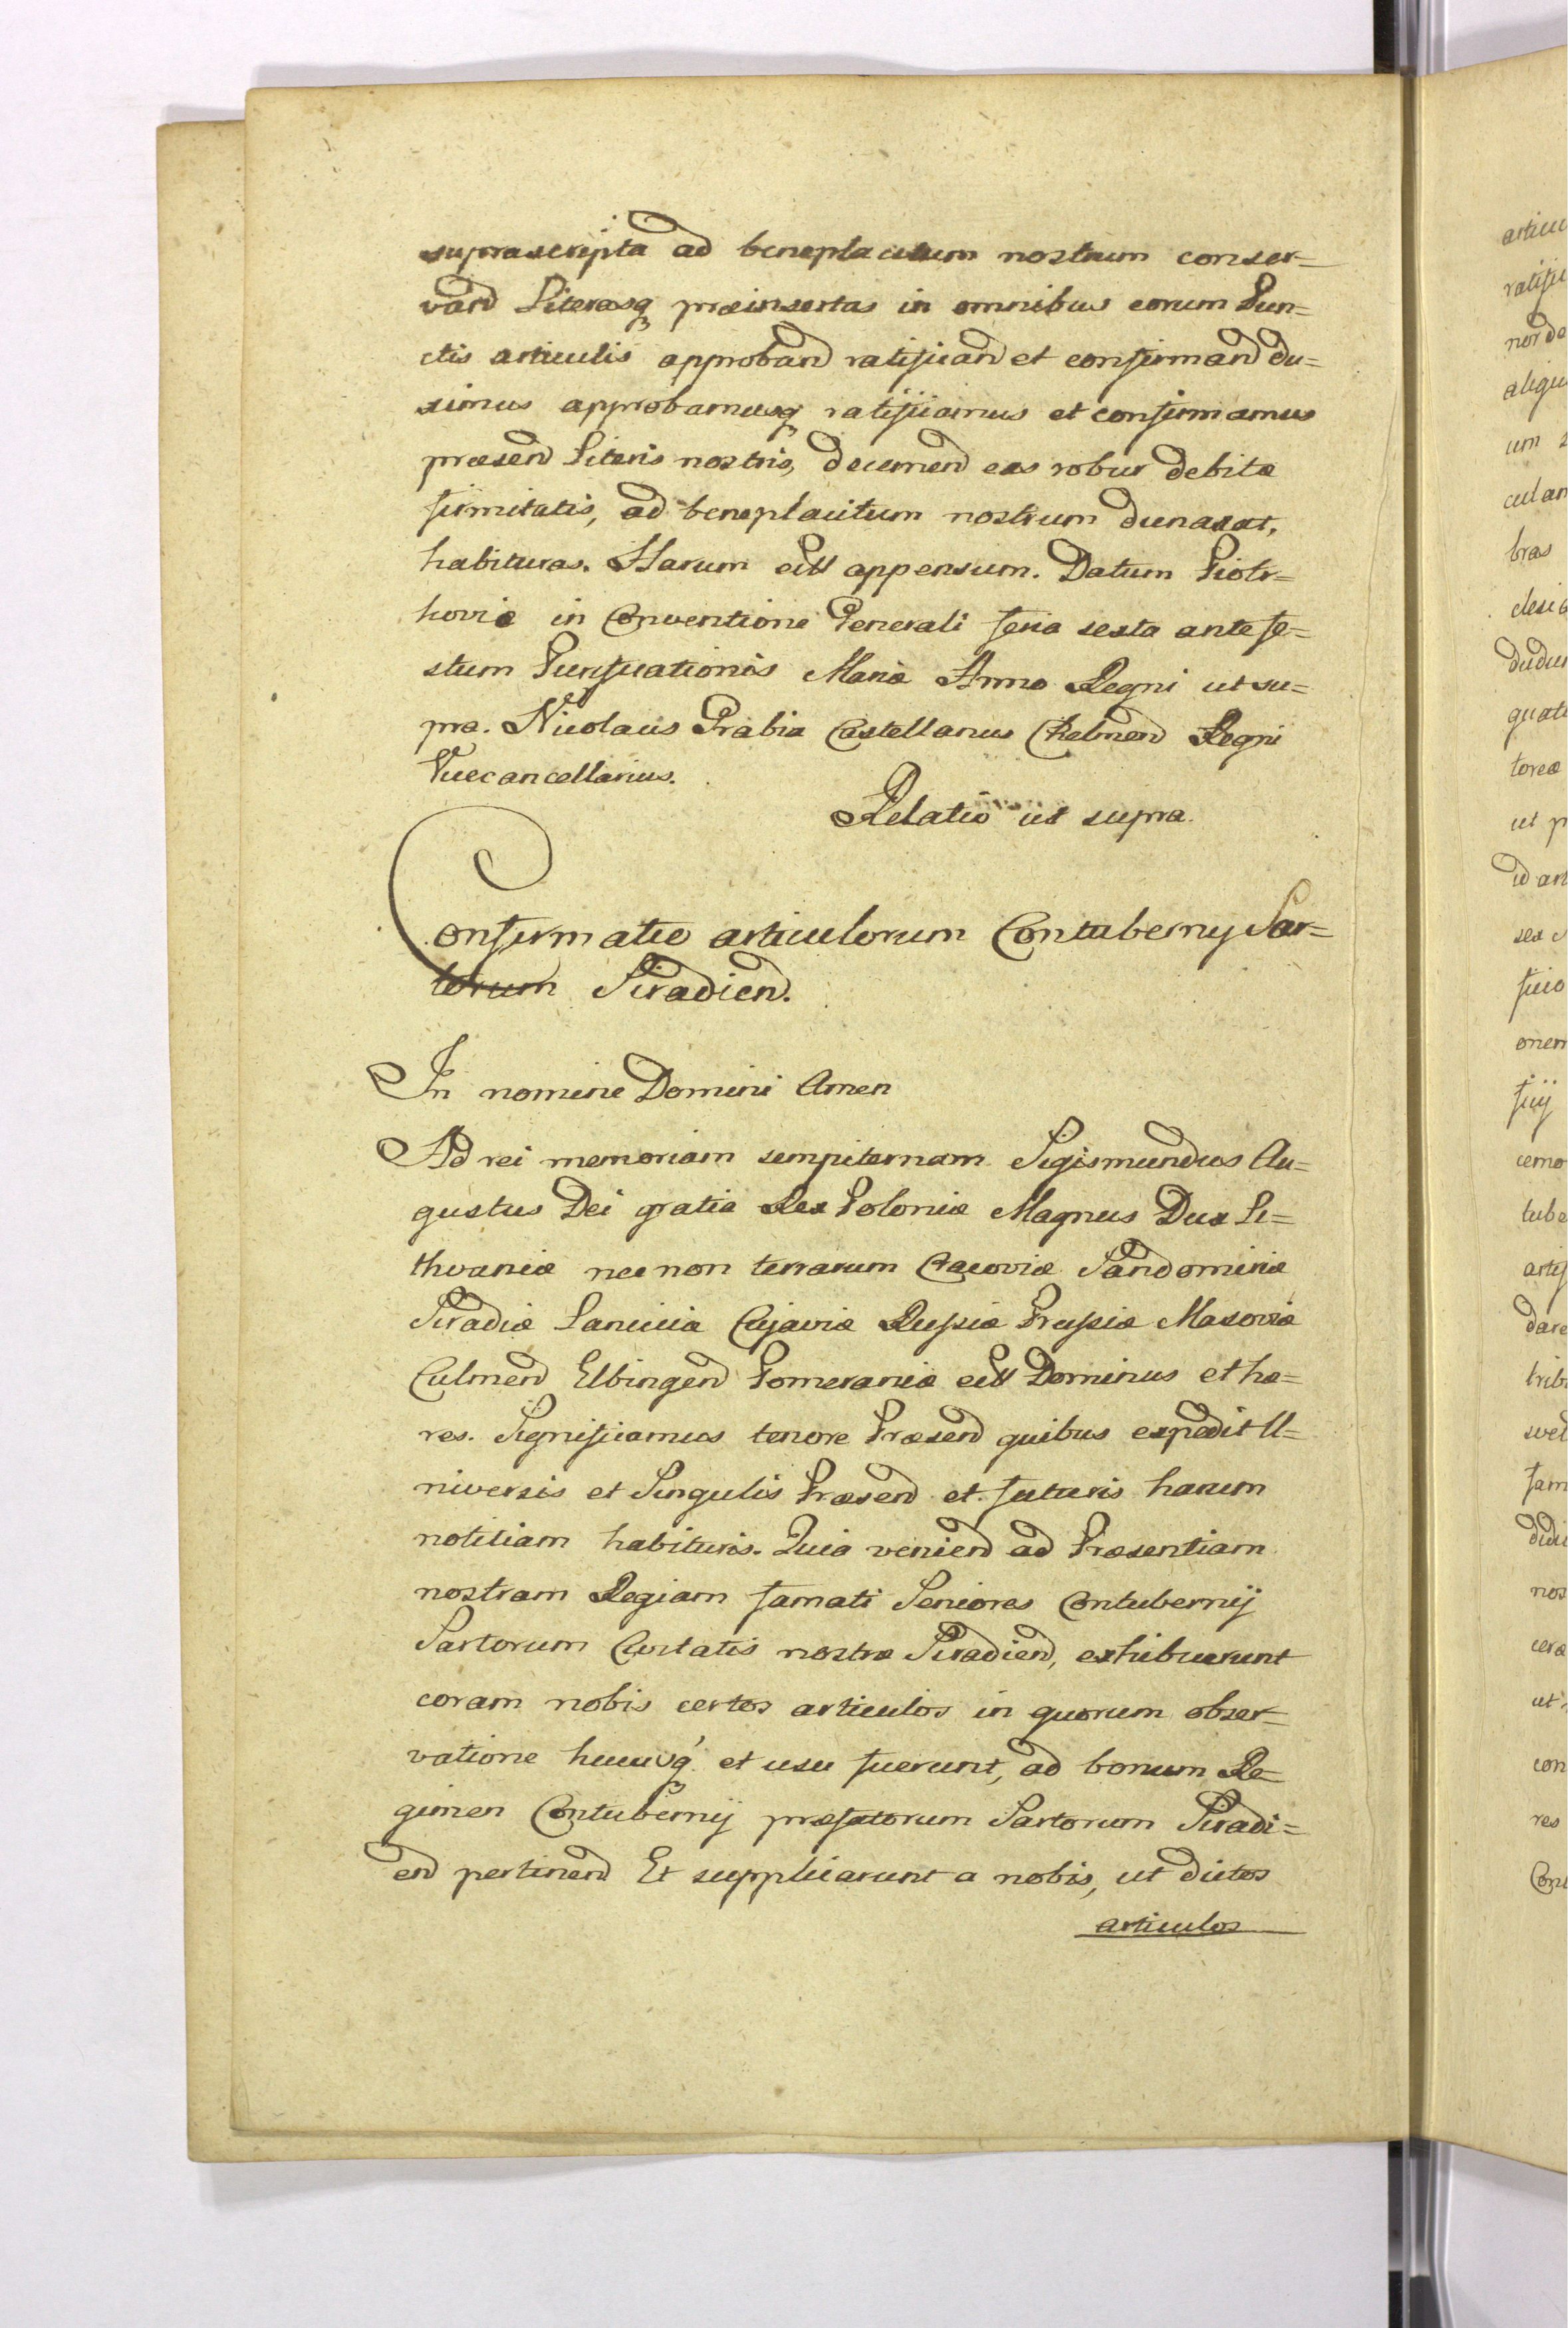 suprascripta ad beneplacitum nostrum conser=
vand Literasq præinsertas in omnibus eorum Pun=
ctis articulis approband ratificand et confirmand du=
ximus approbamusq ratificamus et confirmamus
præsend Literis nostris, decernend eas robur debitæ
firmitatis, ad beneplacitum nostrum
habituras. Harum appensum. Datum Piotr=
koviæ in Conventione Generali feria sexta ante fe=
stum Purificationis Mariæ Anno Regni ut su=
pra. Nicolaus Grabia Castellanus Chelmend Regni
Vicecancellarius.
Relatio ut supra.
Confirmatio articulorum Contubernij Sar=
torum Siradiend.
In nomine Domini Amen
Ad rei memoriam sempiternam Sigismundus Au=
gustus Dei gratia Rex Poloniæ Magnus Dux Li=
thvaniæ nec non terrarum Cracoviæ Sandomiriæ
Siradiæ Lanciciæ Cujaviæ Russiæ Prussiæ Masoviæ
Culmend Elbingend Pomeraniæ Dominus et hæ=
res. Significamus tenore Præsend quibus expedit U=
niversis et Singulis Præsend et futuris harum
notitiam habituris. Quia veniend ad Præsentiam
nostram Regiam famati Seniores Contubernij
Sartorum Civitatis nostræ Siradiend, exhibuerunt
coram nobis certos articulos in quorum obser=
vatione hucusq et usu fuerunt, ad bonum Re=
gimen Contubernij præfatorum Sartorum Siradi=
end pertinend Et supplicarunt a nobis, ut dictos
articulos